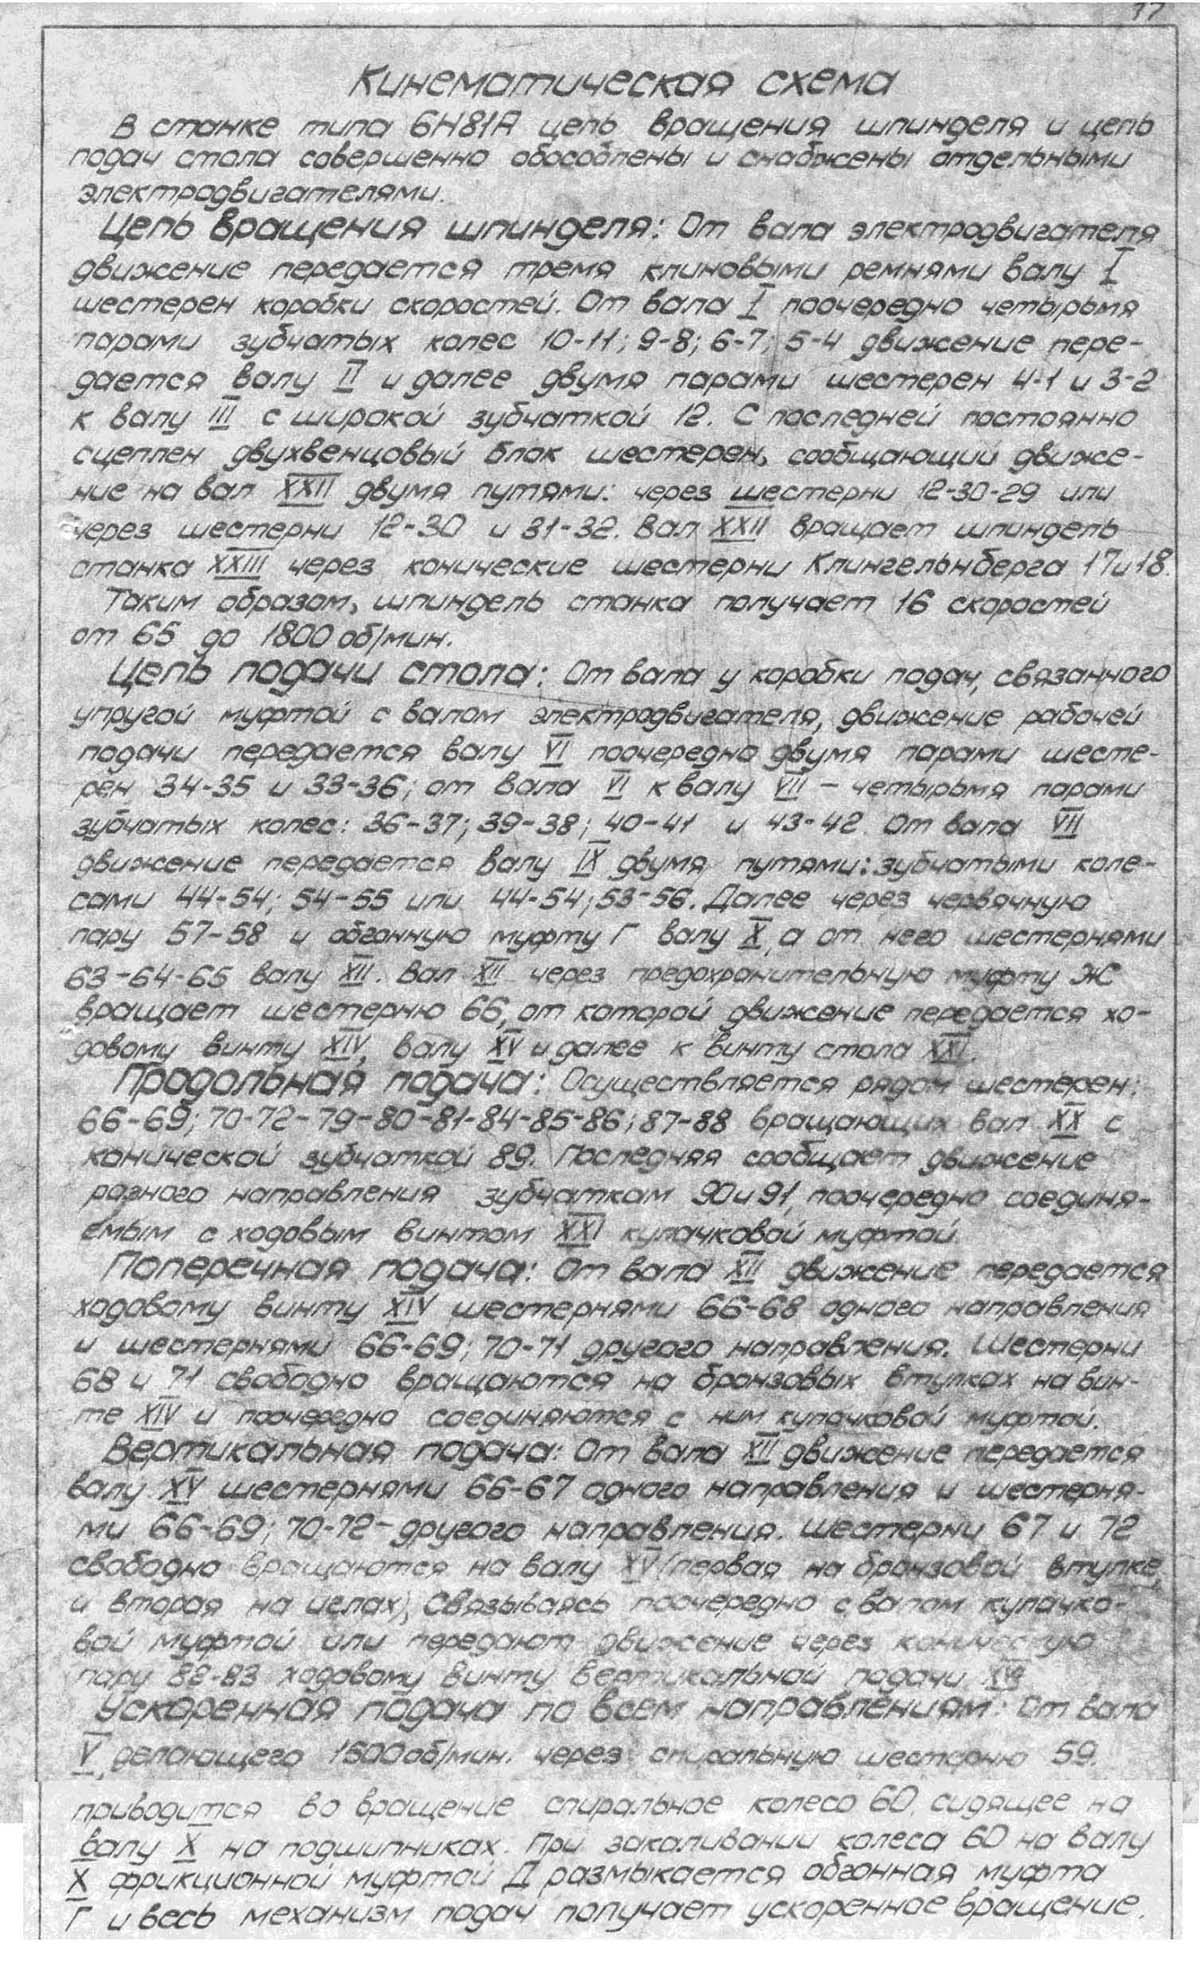 Кинематическая схема
В станке типа 6Н81А цепь вращения шпинделя и цепь
подач стола совершенно обособлены и снабжены отдельными
электродвигателями.
Цепь вращения шпинделя: От вала электродвигателя
движение передается тремя клиновыми ремнями валу I
шестерен коробки скоростей. От вала I поочередно четырьмя
парами зубчатых колес 10-11; 9-8; 6-7; 5-4 движение пере-
дается валу II и далее двумя парами шестерен 4-1 и 3-2
к валу III с широкой зубчаткой 12. С последней постоянно
сцеплен двухвенцовый блок шестерен, сообщающий движе-
ние на вал XXII двумя путями: через шестерни 12-30-29 или
через шестерни 12-30 и 31-32. Вал XXII вращает шпиндель
станка XXIII через конические шестерни Клингельнберга 17и18.
Таким образом, шпиндель станка получает 16 скоростей
от 65 до 1800 об/мин.
Цепь подачи стола: От вала у коробки подач, связанного
упругой муфтой с валом электродвигателя, движение рабочей
подачи передается валу VI поочередно двумя парами шесте-
рен 34-35 и 33-36; от вала VI к валу VII – четырьмя парами
зубчатых колес: 36-37; 39-38; 40-41 и 43-42. От вала VII
движение передается валу IX двумя путями: зубчатыми коле-
сами 44-54; 54-55 или 44-54; 53-56. Далее через червячную
пару 57-58 и обгонную муфту Г валу X, а от него шестернями
63-64-65 валу XII. Вал XII через предохранительную муфту Ж
вращает шестерню 66, от которой движение передается хо-
довому винту XIV, валу XV и далее к винту стола XXI.
Продольная подача: Осуществляется рядом шестерен:
66-69; 70-72-79-80-81-84-85-86; 87-88 вращающих вал XX с
конической зубчаткой 89. Последняя сообщает движение
разного направления зубчаткам 90и91, поочередно соединя-
емым с ходовым винтом XXI кулачковой муфтой.
Поперечная подача: От вала XII движение передается
ходовому винту XIV шестернями 66-68 одного направления
и шестернями 66-69; 70-71 другого направления. Шестерни
68 и 71 свободно вращаются на бронзовых втулках на вин-
те XIV и поочередно соединяются с ним кулачковой муфтой.
Вертикальная подача: От вала XII движение передается
валу XV шестернями 66-67 одного направления и шестерня-
ми 66-69; 70-72- другого направления. Шестерни 67 и 72
свободно вращаются на валу XV (первая на бронзовой втулке,
и вторая на иглах), Связываясь поочередно с валом кулачко-
вой муфтой или передают движение через коническую
пару 82-83 ходовому винту вертикальной подачи
Ускоренная подача по всем направлениям: От вала
V, делающего об/мин. через спиральную шестерню 59.
приводится во вращение спиральное колесо 60, сидящее на
валу X на подшипниках. При закаливании колеса 60 на валу
X фрикционной муфтой Д размыкается обгонная муфта
Г и весь механизм подач получает ускоренное вращение.